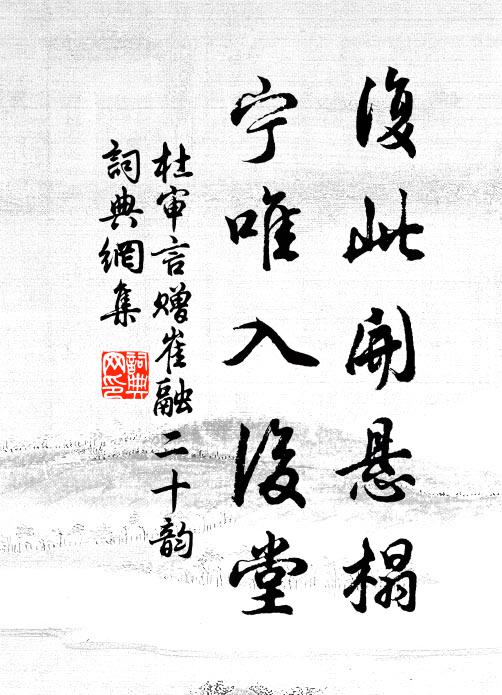 復此開懸榻
宁唯入後堂
杜审言赠崔融二十韵
詞典網集
詞典网印